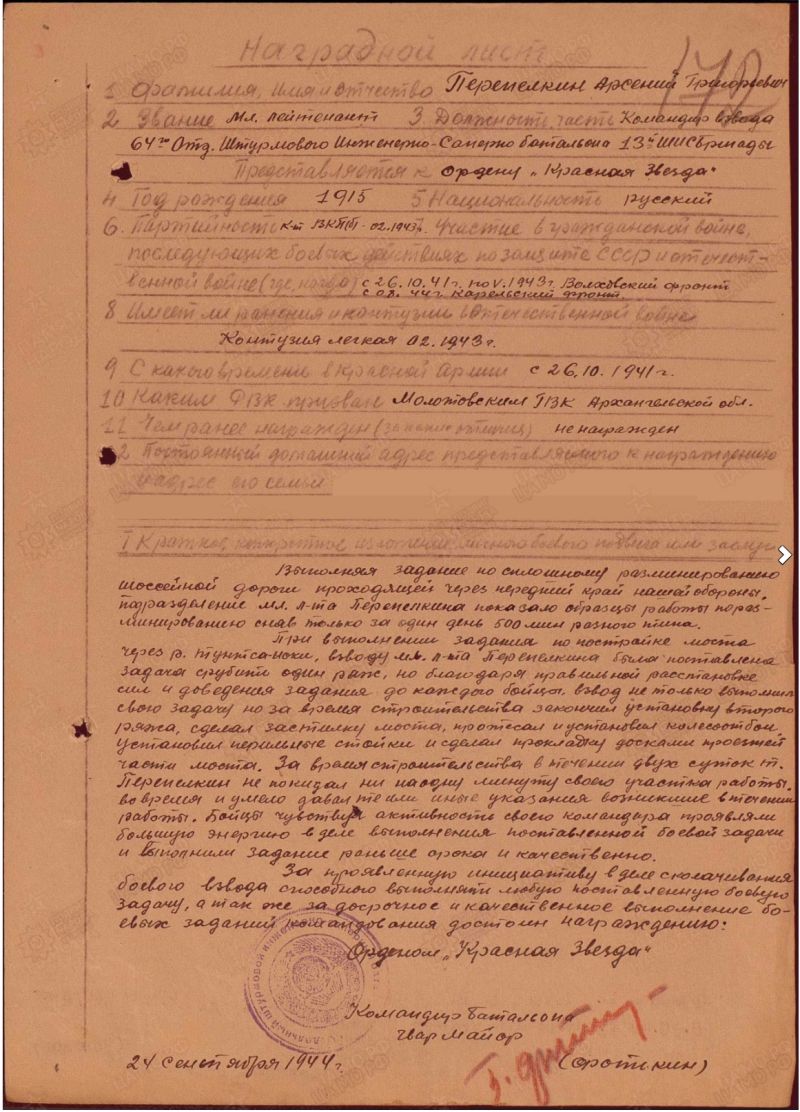 Наградной лист
178
1 Фамилия, имя и отчество Перепелкин Арсений Григорьевич
2 Звание Мл. лейтенант 3. Должность, часть Командир взвода
64го Отд. Штурмового Инженерно-Саперно батальона 13й ШИСбригады
Представляется к ордену „Красная Звезда"
4 Год рождения 1915 5 Национальность русский
6. Партийность к-т ВКП(б)-02.1943г. Участие в гражданской войне,
последующих боевых действиях по защите СССР и отечест-
венной войне (где, когда) с 26.10.41г. по V.1943г. Волховский фронт
с 02.44г. Карельский фронт.
8 Имеет ли ранения и контузии в отечественной войне
Контузия легкая 02.1943г.
9 С какого времени в красной армии с 26.10.1941г.
10 Каким РВК призван Молотовским ГВК Архангельской обл.
11 Чем ранее награжден (за какие отличия) не награжден
12 Постоянный домашний адрес представляемого к награждению
и адрес его семьи
I Краткое, конкретное изложение личного боевого подвига или заслуг
Выполняя задание по сплошному разминированию
шоссейной дороги проходящей через передний край нашей обороны,
подразделение мл. л-та Перепелкина показало образцы работы по раз-
минированию сняв только за один день 500 мин разного типа.
При выполнении задания по постройке моста
через р. Тунтса-иоки, взводу мл. л-та Перепелкина была поставлена
задача срубить один ряж, но благодаря правильной расстановке
сил и доведения задания до каждого бойцы, взвод не только выполнил
свою задачу но за время строительства закончил установку второго
ряжа, сделал застилку моста, протесал и установил колесоотбои,
установил перильные стойки и сделал прокладку досками проезжей
части моста. За время строительства в течении двух суток т.
Перепелкин не покидал ни на одну минуту своего участка работы.
во время и умело давал те или иные указания возникшие в течении
работы. Бойцы чувствуя активность своего командира проявляли
большую энергию в деле выполнения поставленной боевой задачи
и выполнили задание раньше срока и качественно.
За проявленную инициативу в деле сколачивания
боевого взвода способного выполнять любую поставленную боевую
задачу, а так же за досрочное и качественное выполнение бо-
евых заданий командования достоин награждению:
Орденом „Красная Звезда"
Командир батальона
Гвар Майор
24 сентября 1944г. (Фроткин)